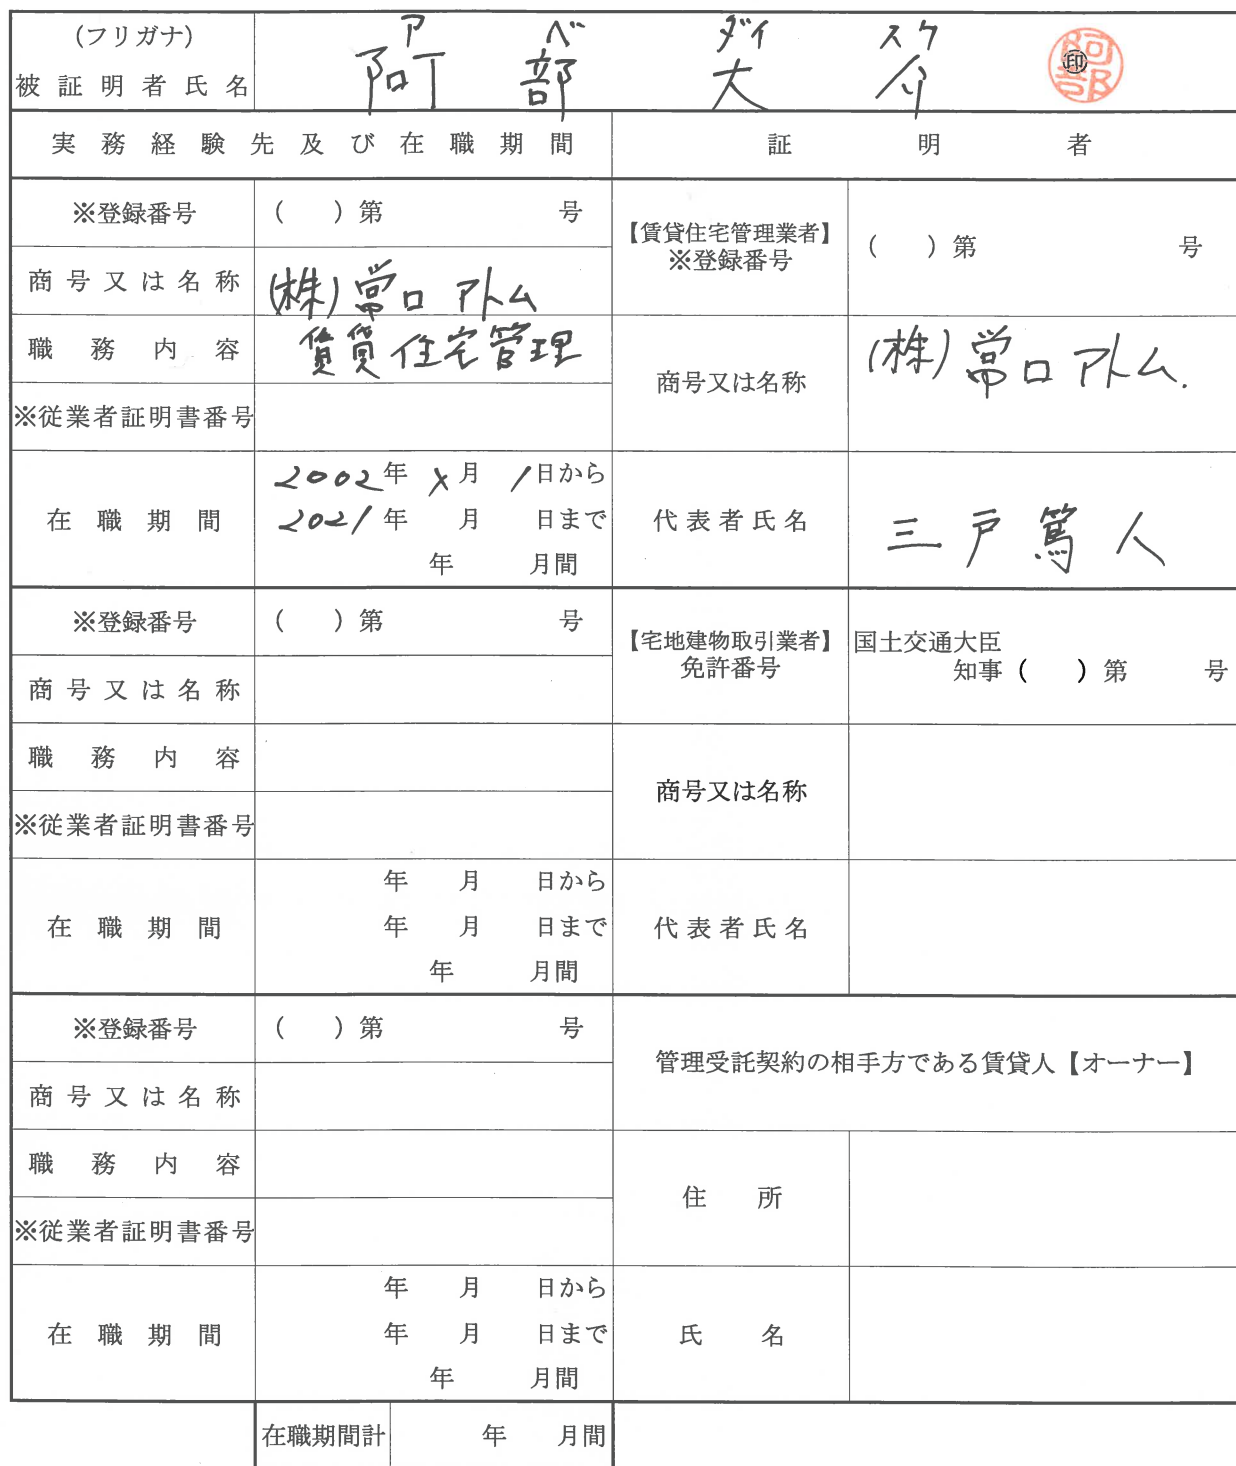 (フリガナ) ア ベ ダイ スケ
被証明者氏名 阿 部 大 介 ㊞ 阿部
実務経験先及び在職期間 証明者
※登録番号 ( )第 号 【賃貸住宅管理業者】 ※登録番号 ( )第 号
商号又は名称 (株)常口アトム
職務内容 賃貸住宅管理 商号又は名称 (株)常口アトム.
※従業者証明書番号
在職期間 2002年 月 1日から
2021年 月 日まで
年 月間
代表者氏名 三戸篤人
※登録番号 ( )第 号 【宅地建物取引業者】 免許番号 国土交通大臣
知事( )第 号
商号又は名称
職務内容 商号又は名称
※従業者証明書番号
在職期間 年 月 日から
年 月 日まで
年 月間
代表者氏名
※登録番号 ( )第 号 管理受託契約の相手方である賃貸人【オーナー】
商号又は名称
職務内容 住所
※従業者証明書番号
在職期間 年 月 日から
年 月 日まで
年 月間
氏名
在職期間計 年 月間